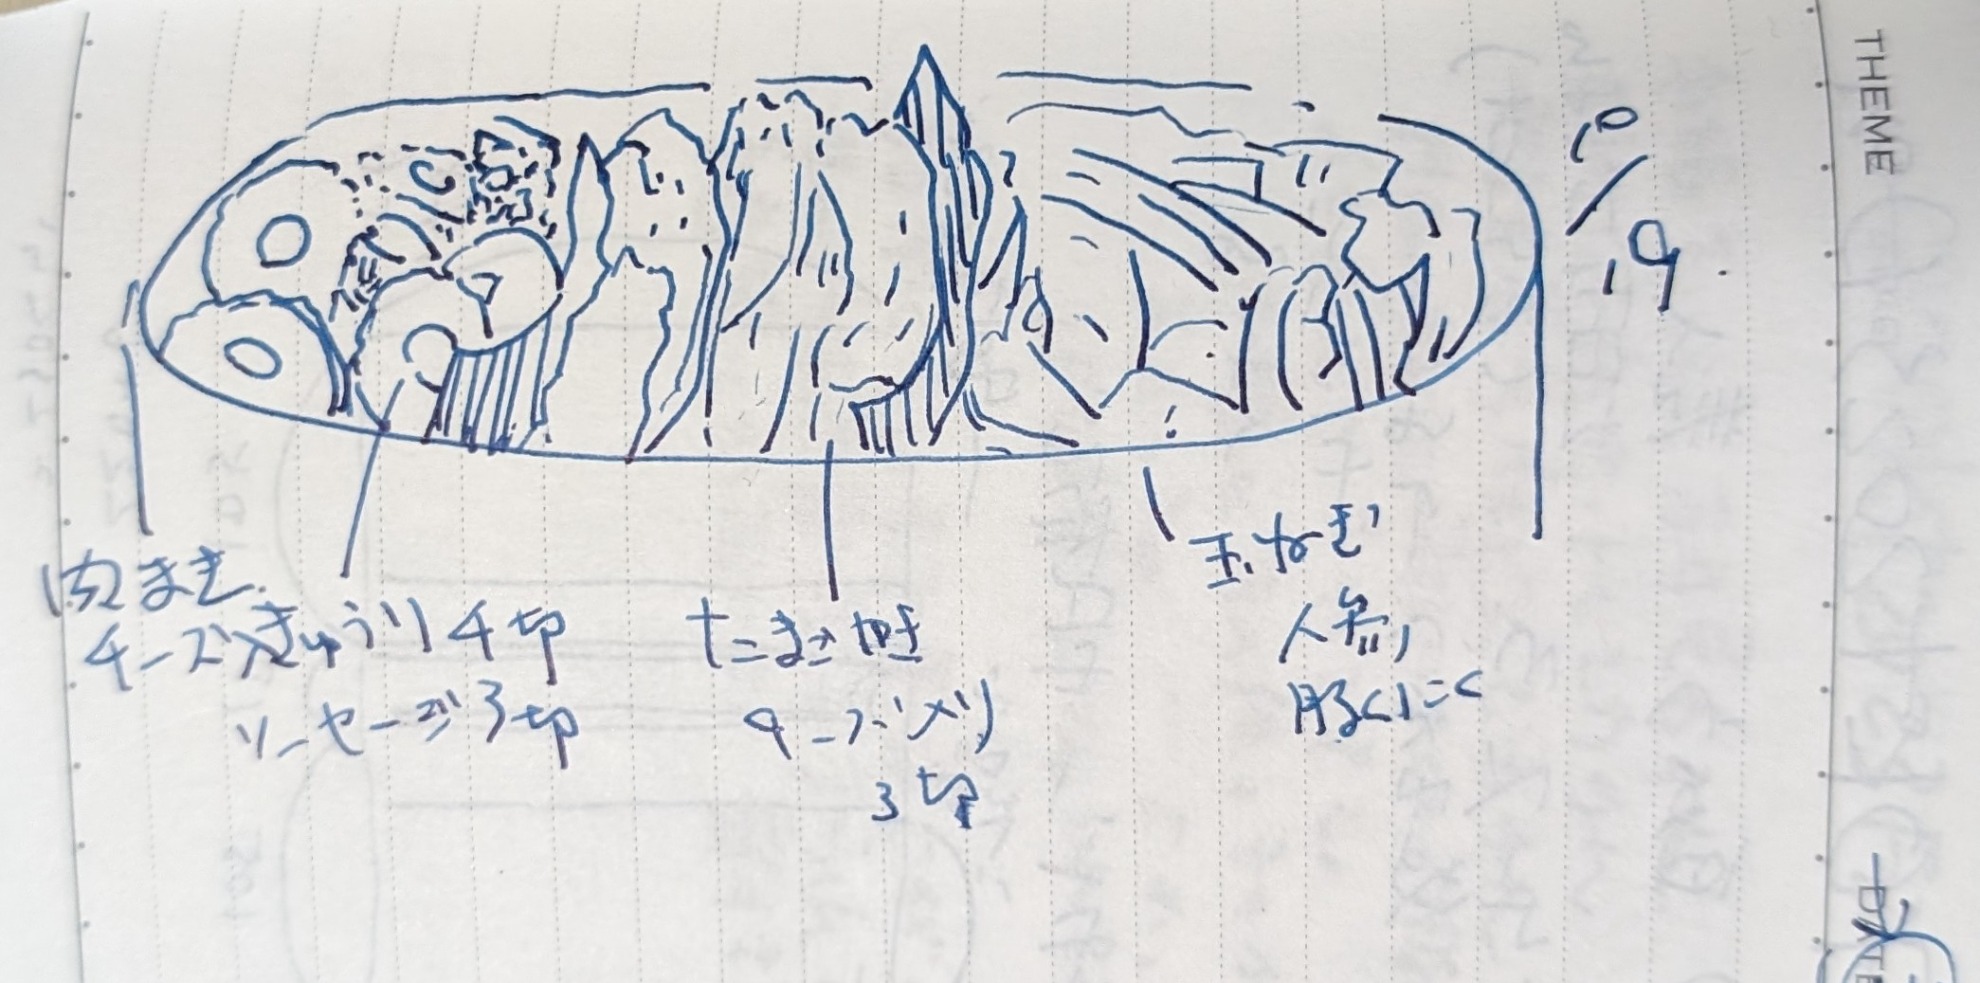 THEME
10/19.
肉まき
チーズ入きゅうり4切
ソーセージ3切
たまご焼
チーズ入り
3切
玉ねぎ
人参,
豚にく
DATE